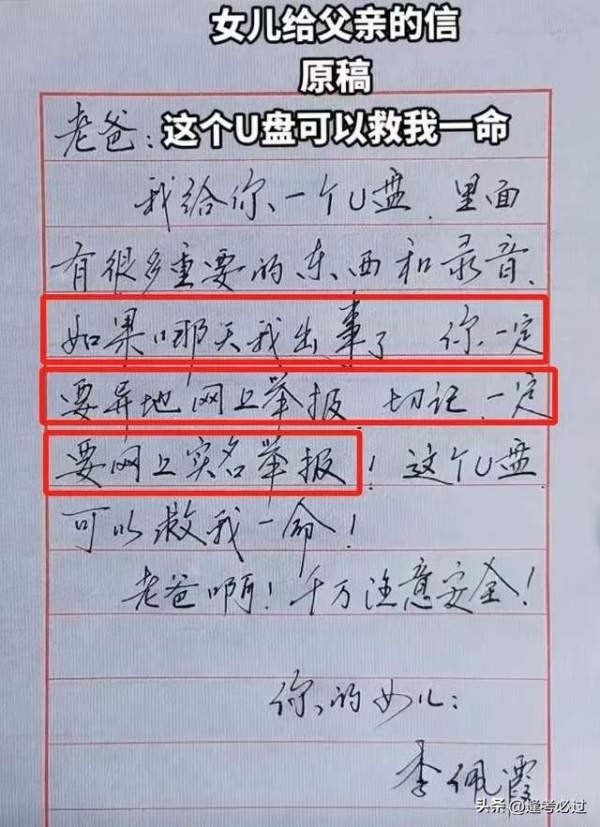 女儿给父亲的信
原稿
这个U盘可以救我一命
老爸：
我给你一个U盘，里面
有很多重要的东西和录音，
如果哪天我出事了 你一定
要异地网上举报，切记，一定
要网上实名举报！这个U盘
可以救我一命！
老爸啊！千万注意安全！
你的女儿：
李佩霞
头条@逢考必过